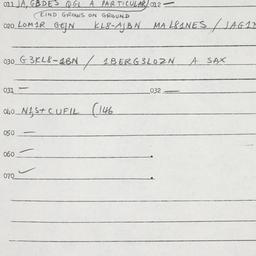 011 JA, GBDES QGL A PARTICULAR/ 012 —
(KIND GROWS ON GROUND
020 LOM1R GEJN KL8-AJBN MAL81NES / JAG1
030 G3KL8-1BN / 1BERG3LOZN A SAX
031 — 032 —
040 N1S+CUFIL (146
050 —
060 —
070